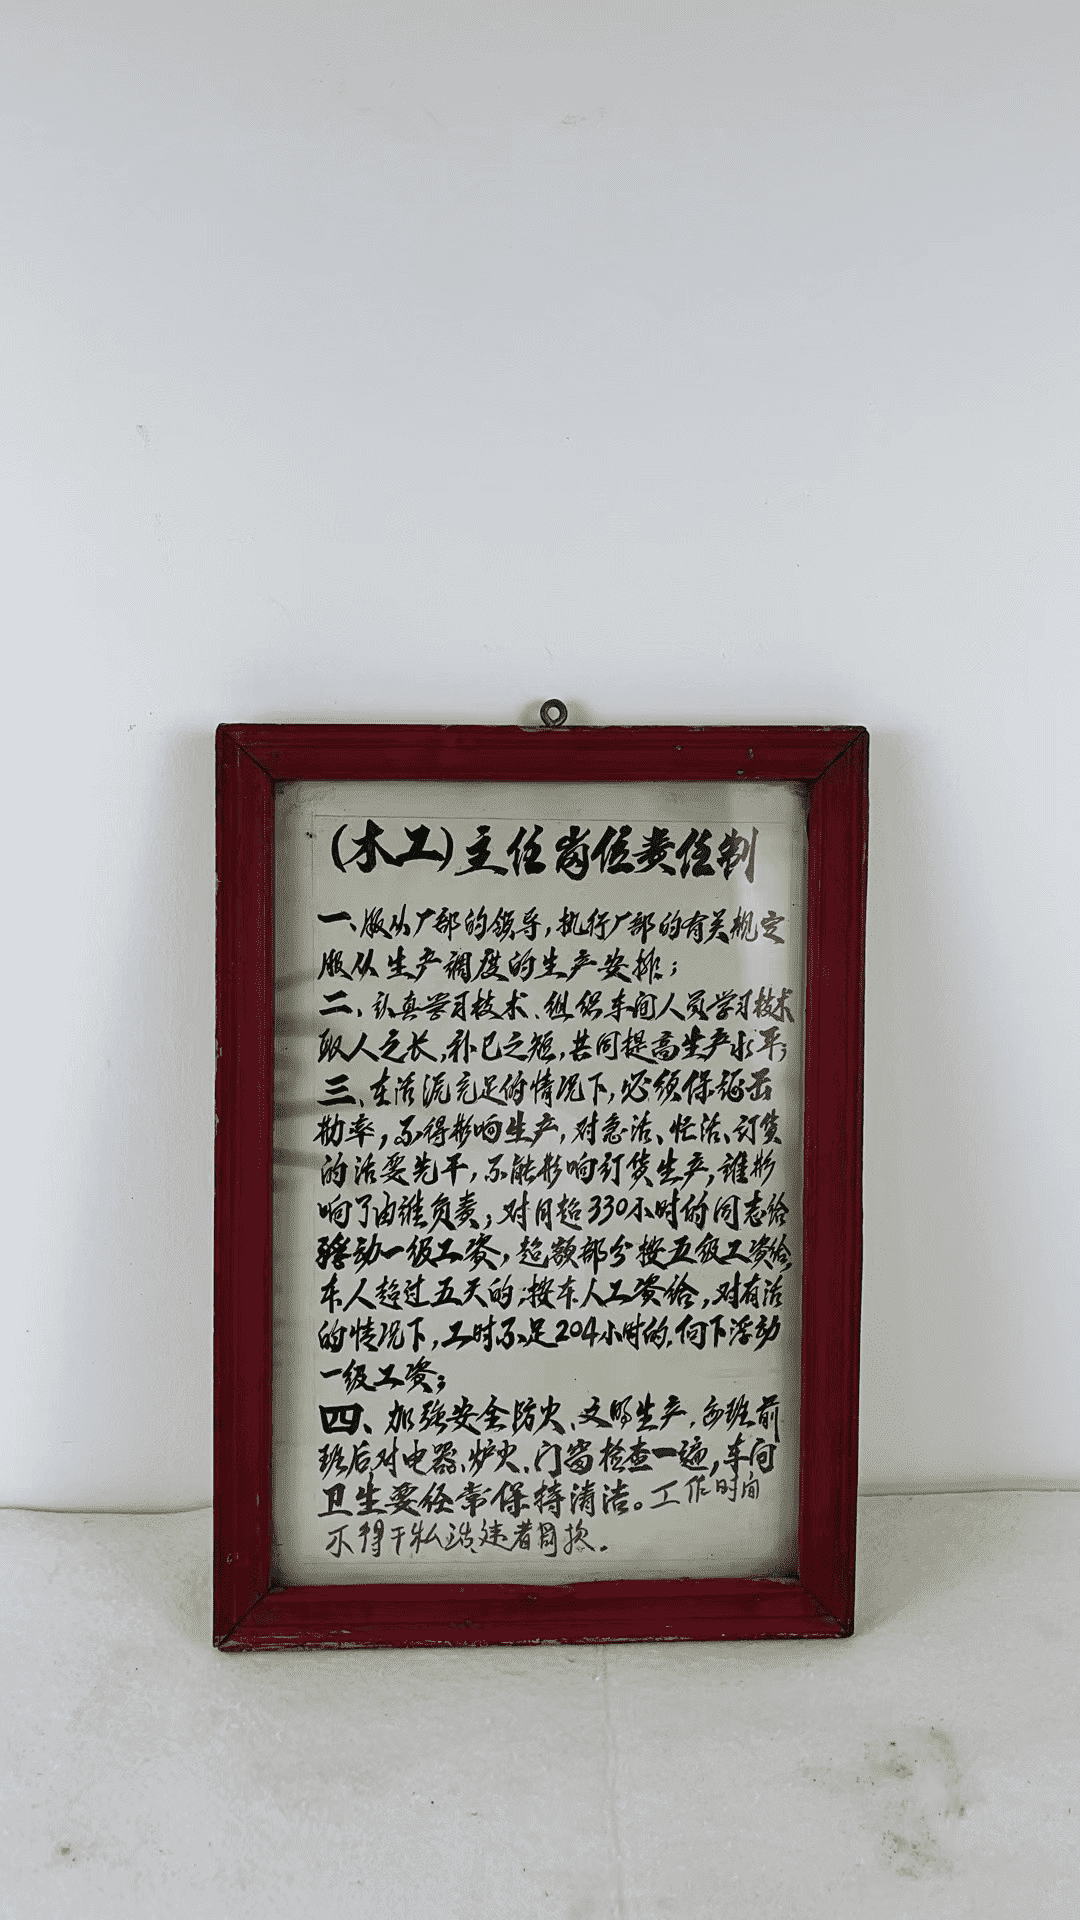 (木工)主任岗位责任制
一、服从厂部的领导,执行厂部的有关规定
服从生产调度的生产安排;
二、认真学习技术、组织车间人员学习技术
取人之长,补己之短,共同提高生产水平;
三、在活源充足的情况下,必须保证出
勤率,不得影响生产,对急活、忙活、订货
的活要先干,不能影响订货生产,谁影
响了由谁负责,对月超330小时的同志给
浮动一级工资,超额部分按五级工资给,
本人超过五天的;按本人工资给,对有活
的情况下,工时不足204小时的,向下浮动
一级工资;
四、加强安全防火、文明生产,每班前
班后对电器、炉火、门窗检查一遍,车间
卫生要经常保持清洁。工作时间
不得干私活,违者